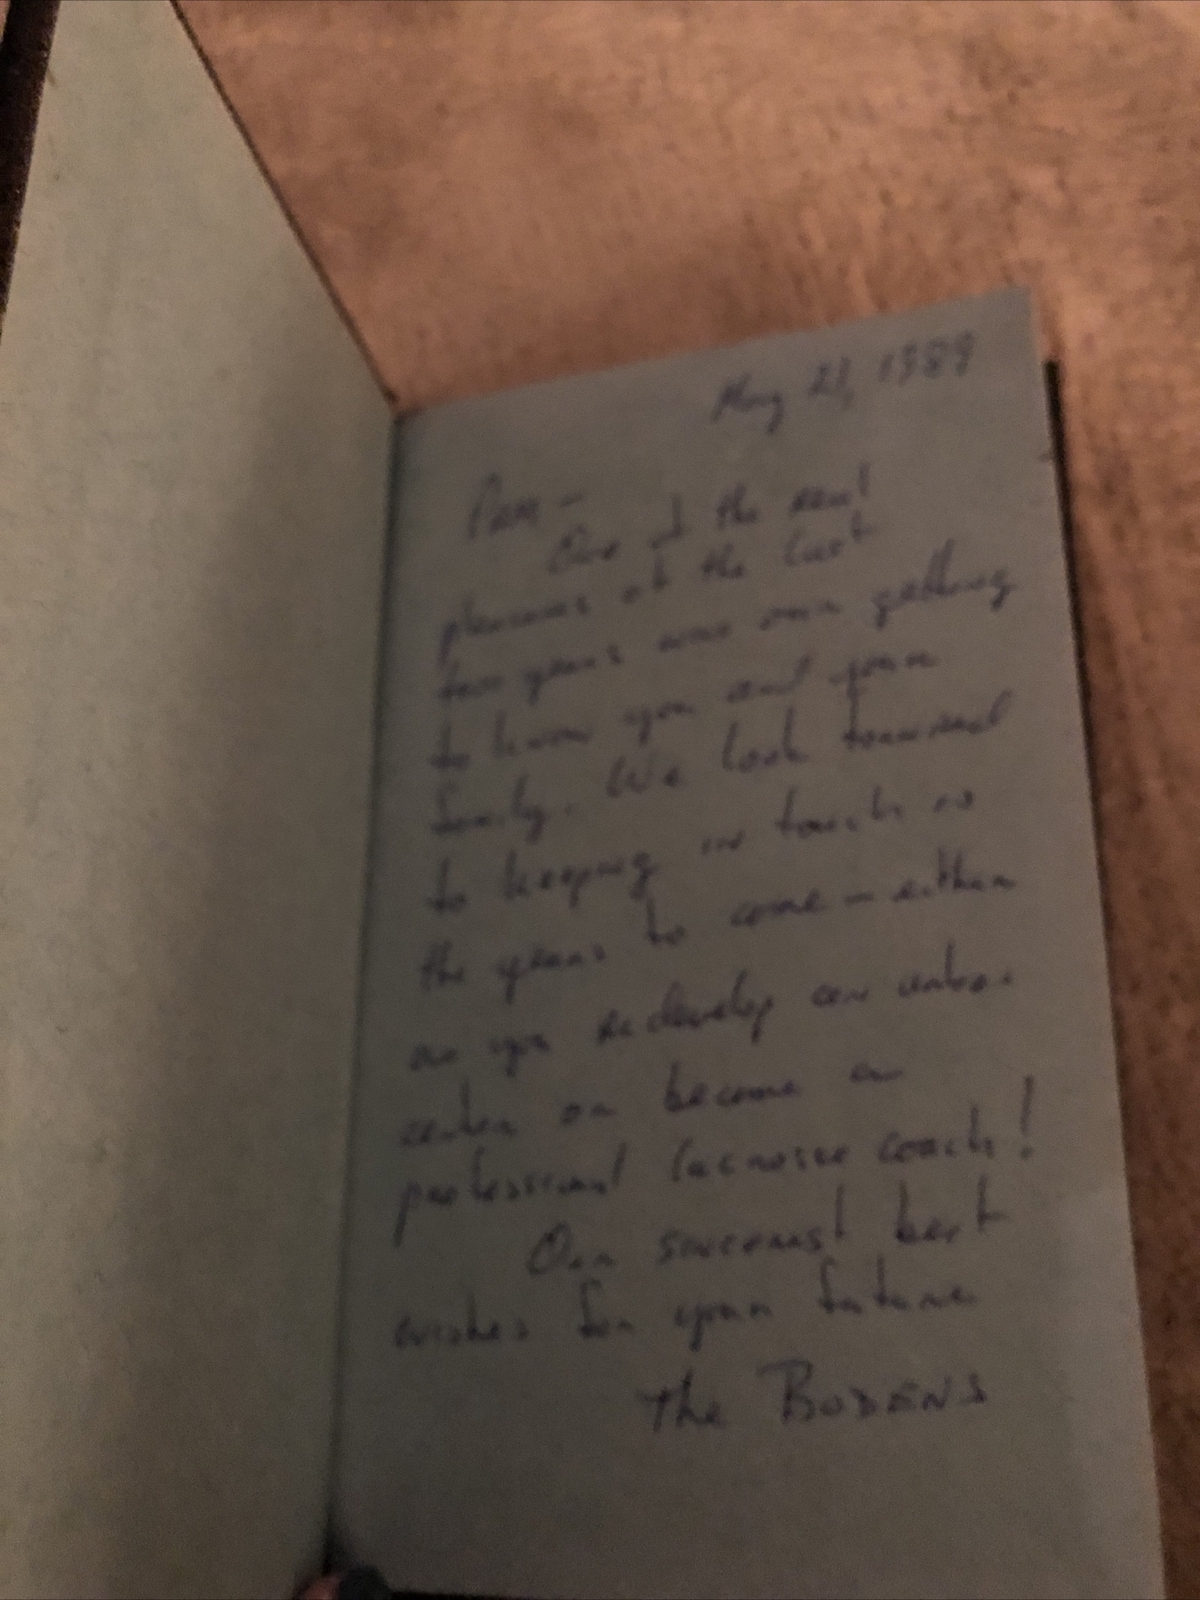 May 21, 1989
Pam -
One of the real
pleasures of the last
two years was our getting
to know you and your
family. We look forward
to keeping in touch in
the years to come - either
as you redevelop an urban
center or become a
professional lacrosse coach!
Our sincerest best
wishes for your future
The BODENS